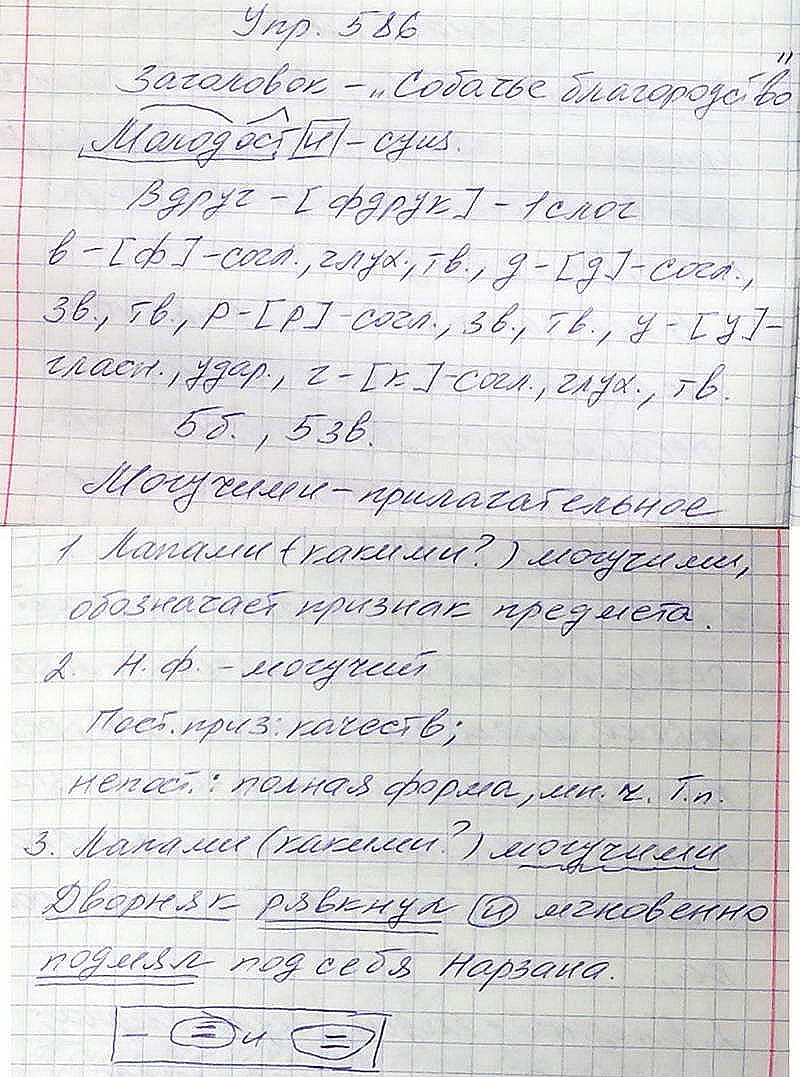 Упр. 586
Заголовок – „Собачье благородство"
Молодости – сущ.
Вдруг – [фдрук] – 1 слог
в – [ф] – согл., глух., тв., д – [д] – согл.,
зв., тв., р – [р] – согл., зв., тв., у – [у] –
гласн., удар., г – [к] – согл., глух., тв.
5 б., 5 зв.
Могучими – прилагательное
1 Лапами (какими?) могучими,
обозначает признак предмета.
2. Н. ф. – могучий
Пост. приз: качеств;
непост.: полная форма, мн. ч. Т.п.
3. Лапами (какими?) могучими
Дворняк рявкнул и мгновенно
подмял под себя Нарзана.
– = и =